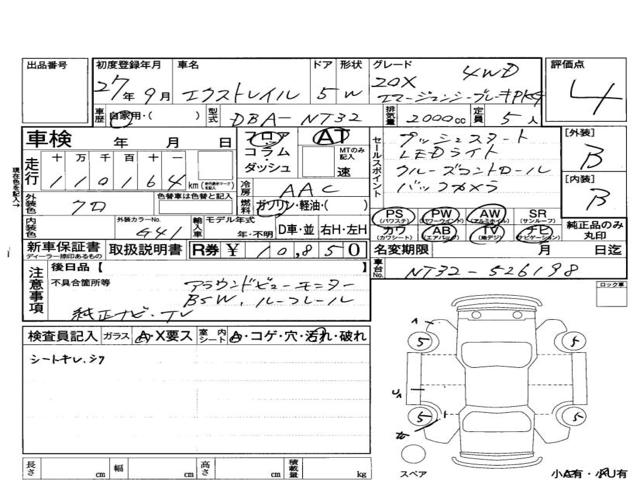 出品番号 初度登録年月 車名 ドア 形状 グレード 評価点
27年 9月 エクストレイル 5 W 20X 4WD
エマージェンシーブレーキPKG
4
車歴 自家用・( ) 型式 DBA-NT32 排気量 2000cc 定員 5人
車検 年 月 日 フロア コラム・ダッシュ AT MTのみ記入 速
現在色を記入→
走行 十 万 千 百 十 一
110164 km
冷房 AAC
燃料 ガソリン・軽油・( )
外装色 クロ 色替車は色替と記入
内装色 外装カラーNo. G41 輸入車 モデル年式 年・不明 D車・並 右H・左H
セールスポイント
プッシュスタート
LEDライト
クルーズコントロール
バックカメラ
[外装] B
[内装] B
PS (パワステ) PW (パワーウインド) AW (アルミホイル) SR (サンルーフ)
カワ (カワシート) AB (エアバック) TV (地デジ) ナビ (ナビゲーション)
純正品のみ丸印
新車保証書 ディーラー捺印あるもの 取扱説明書 R券 ¥ 10,850
名変期限 月 日迄
車台No. NT32-526198
注意事項 後日品【 】
不具合箇所等 アラウンドビューモニター
BSW、ルーフレール
純正ナビ・TV
ロック車
検査員記入 ガラス A・X要ス 室内シート A・コゲ・穴・汚れ・破れ
シートキレ、シワ
5 5
5 5
スペア 小A有・小U有
長さ cm 幅 cm 高さ cm 積載量 kg